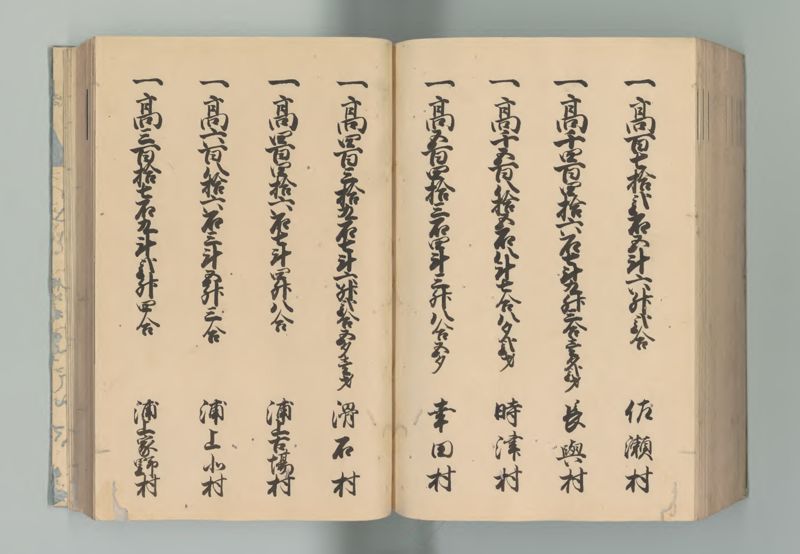 一高百七拾弐石五斗六升弐合 佐瀬村
一高千四百四拾六石七斗九升三合 長與村
一高千五百八拾五石八斗七合八夕弐才 時津村
一高五百四拾三石四斗三升八合五夕 幸田村
一高四百三拾五石七斗六升弐合五夕 滑石村
一高四百四拾六石七斗四升八合 浦上古場村
一高六百八拾六石三斗五升三合 浦上北村
一高三百拾七石五斗弐升四合 浦上家野村